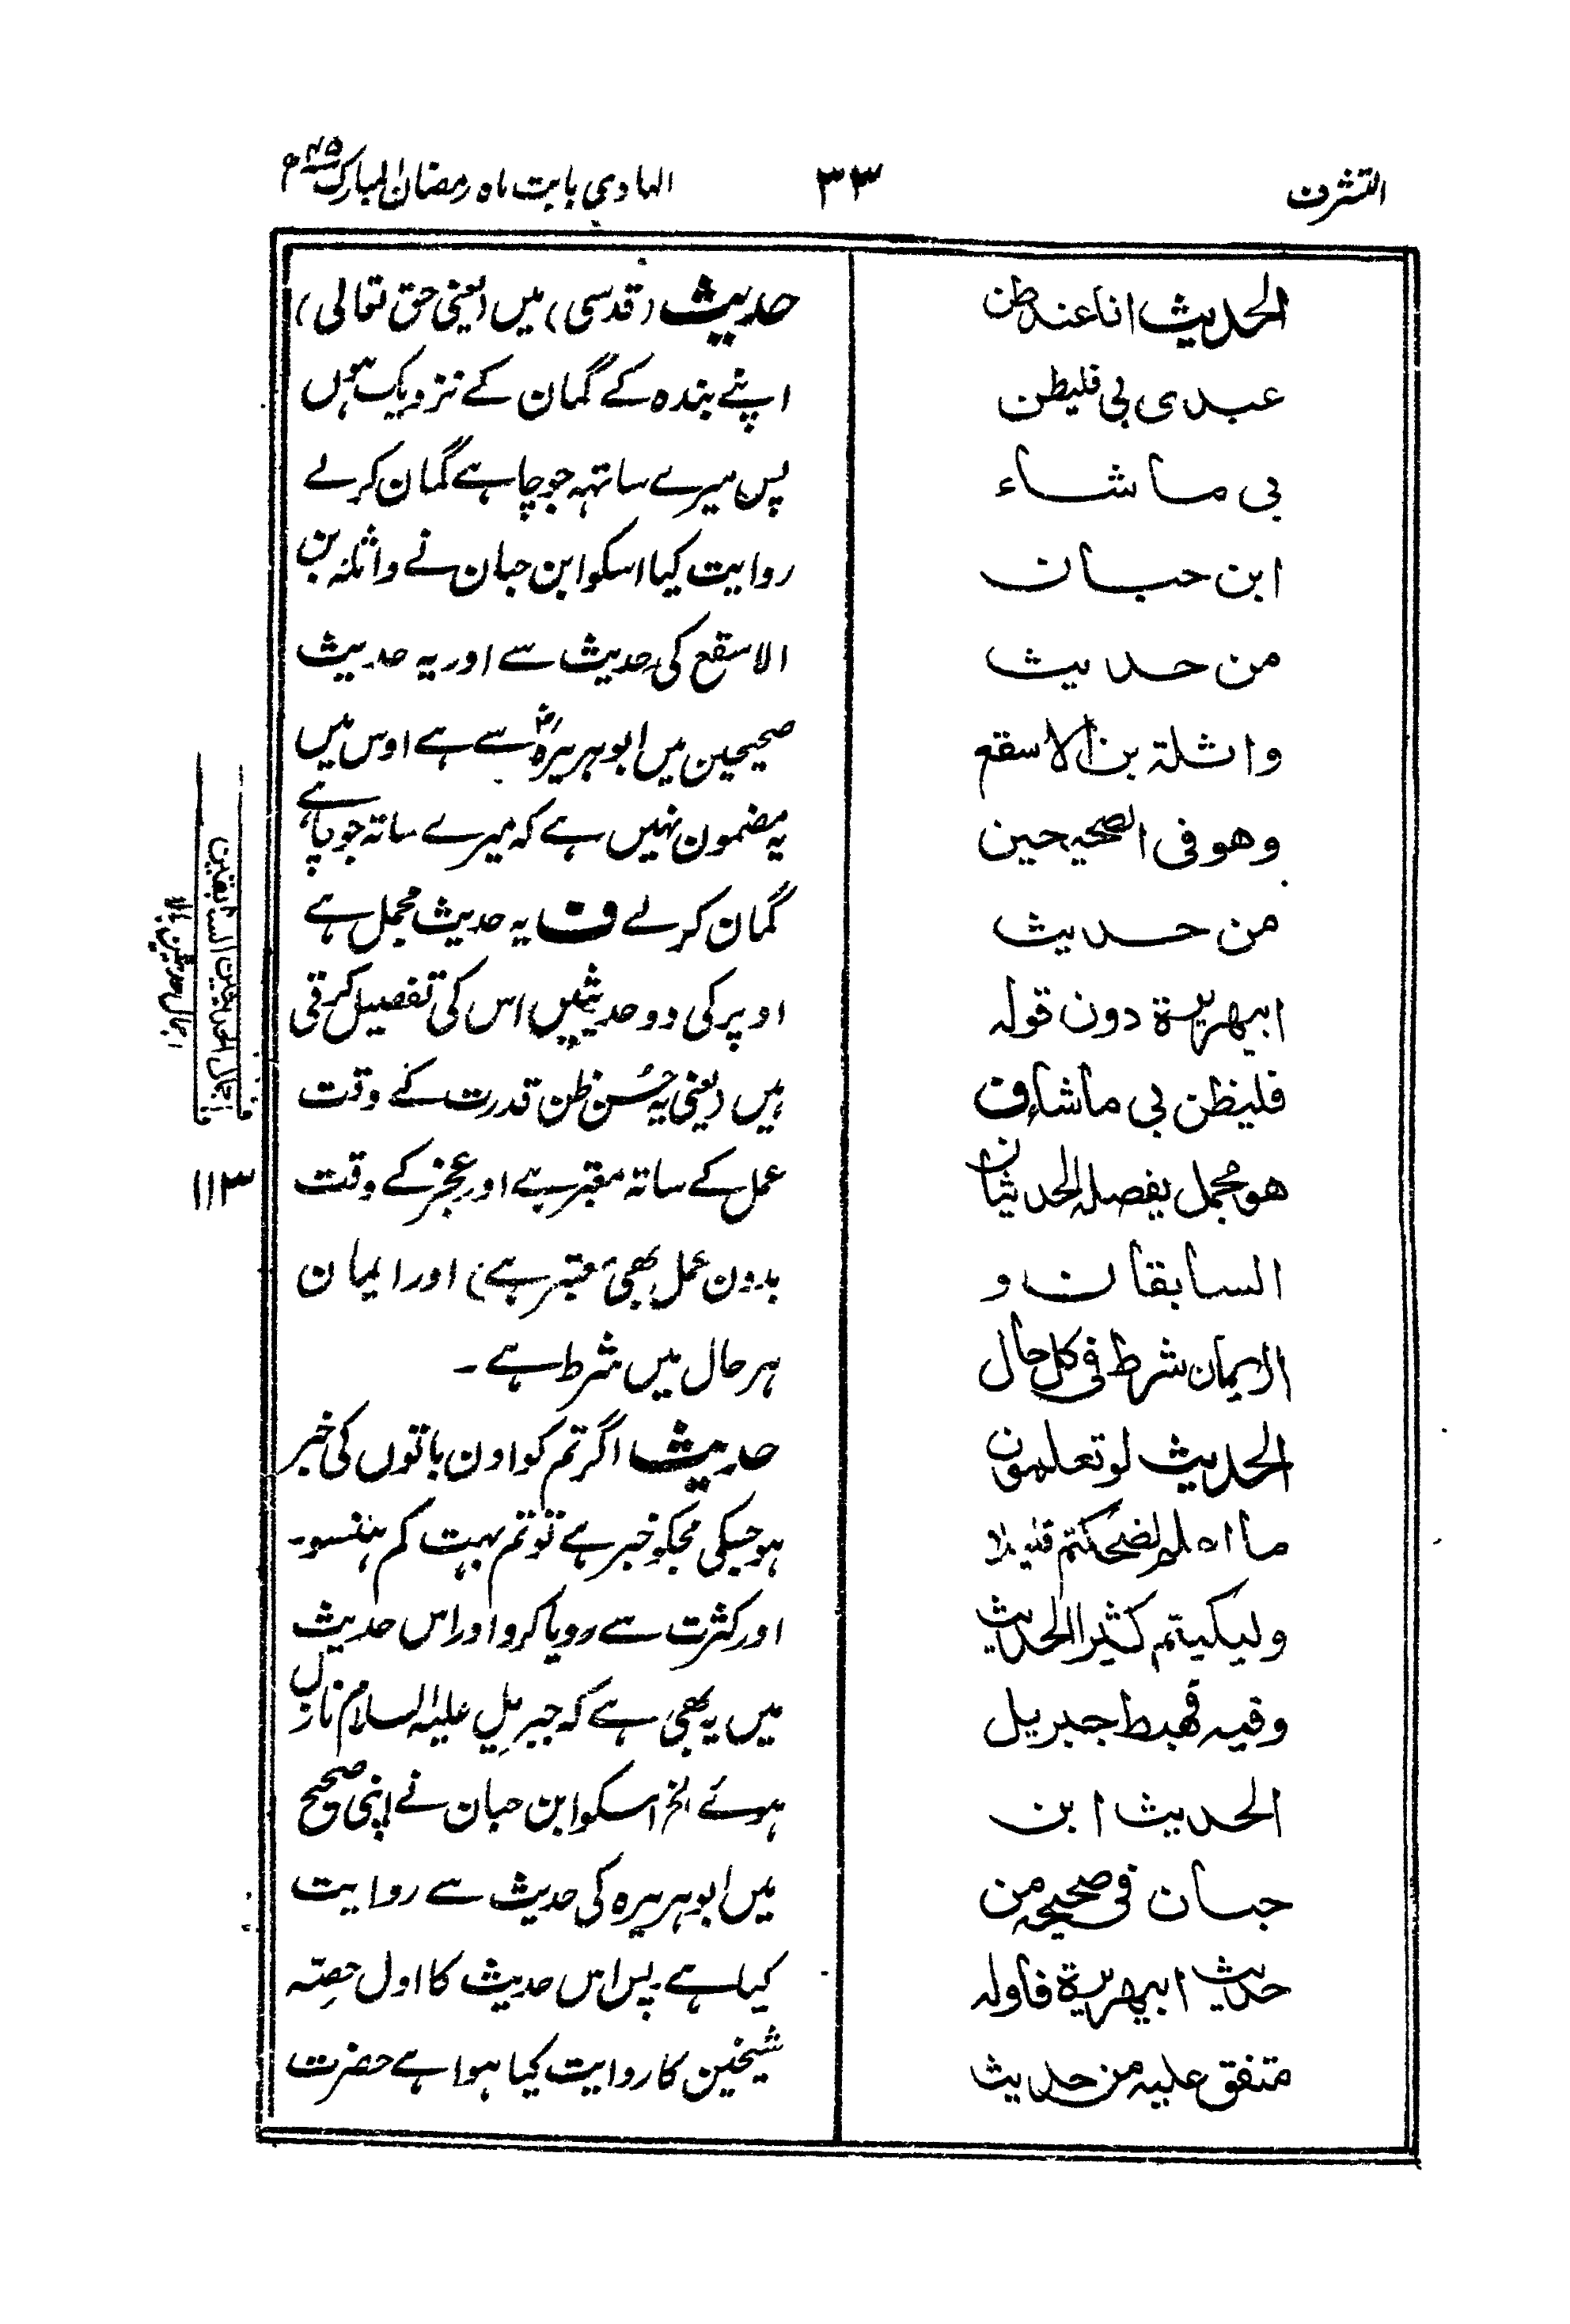 التشرف
٣٣
الہادی بابت ماہ رمضان المبارک ۴۵ھ
الحدیث انا عند ظن
عبدی بی فلیظن
بی ما شاء
ابن حبان
من حدیث
واثلۃ بن الاسقع
وھو فی الصحیحین
من حدیث
ابیھریرۃ دون قولہ
فلیظن بی ما شاء ف
ھو مجمل یفصلہ الحدیثان
السابقان و
الایمان شرط فی کل حال
الحدیث لو تعلمون
ما اعلم لضحکتم قلیلا
ولبکیتم کثیرا الحدیث
وفیہ فھبط جبریل
الحدیث ابن
حبان فی صحیحہ من
حدیث ابیھریرۃ فاولہ
متفق علیہ من حدیث
حدیث (قدسی) میں (یعنی حق تعالی)
اپنے بندہ کے گمان کے نزدیک ہوں
پس میرے ساتھہ جو چاہے گمان کرلے
روایت کیا اسکو ابن حبان نے واثلہ بن
الاسقع کی حدیث سے اور یہ حدیث
صحیحین میں ابوہریرہؓ سے ہے اوس میں
یہ مضمون نہیں ہے کہ میرے ساتہ جو چاہے
گمان کرلے ف یہ حدیث مجمل ہے
اوپر کی دو حدیثیں اس کی تفصیل کرتی
ہیں (یعنی یہ حُسن ظن قدرت کے وقت
عمل کے ساتہ معتبر ہے اور عجز کے وقت
بدون عمل بھی معتبر ہے) اور ایمان
ہر حال میں شرط ہے ۔
حدیث اگر تم کو اون باتوں کی خبر
ہو جسکی مجکو خبر ہے تو تم بہت کم ہنسو۔
اور کثرت سے رویا کرو اور اس حدیث
میں یہ بھی ہے کہ جبریل علیہ السلام نازل
ہوئے الخ اسکو ابن حبان نے اپنی صحیح
میں ابوہریرہ کی حدیث سے روایت
کیا ہے پس اس حدیث کا اول حصّہ
شیخین کا روایت کیا ہوا ہے حضرت
١١٣